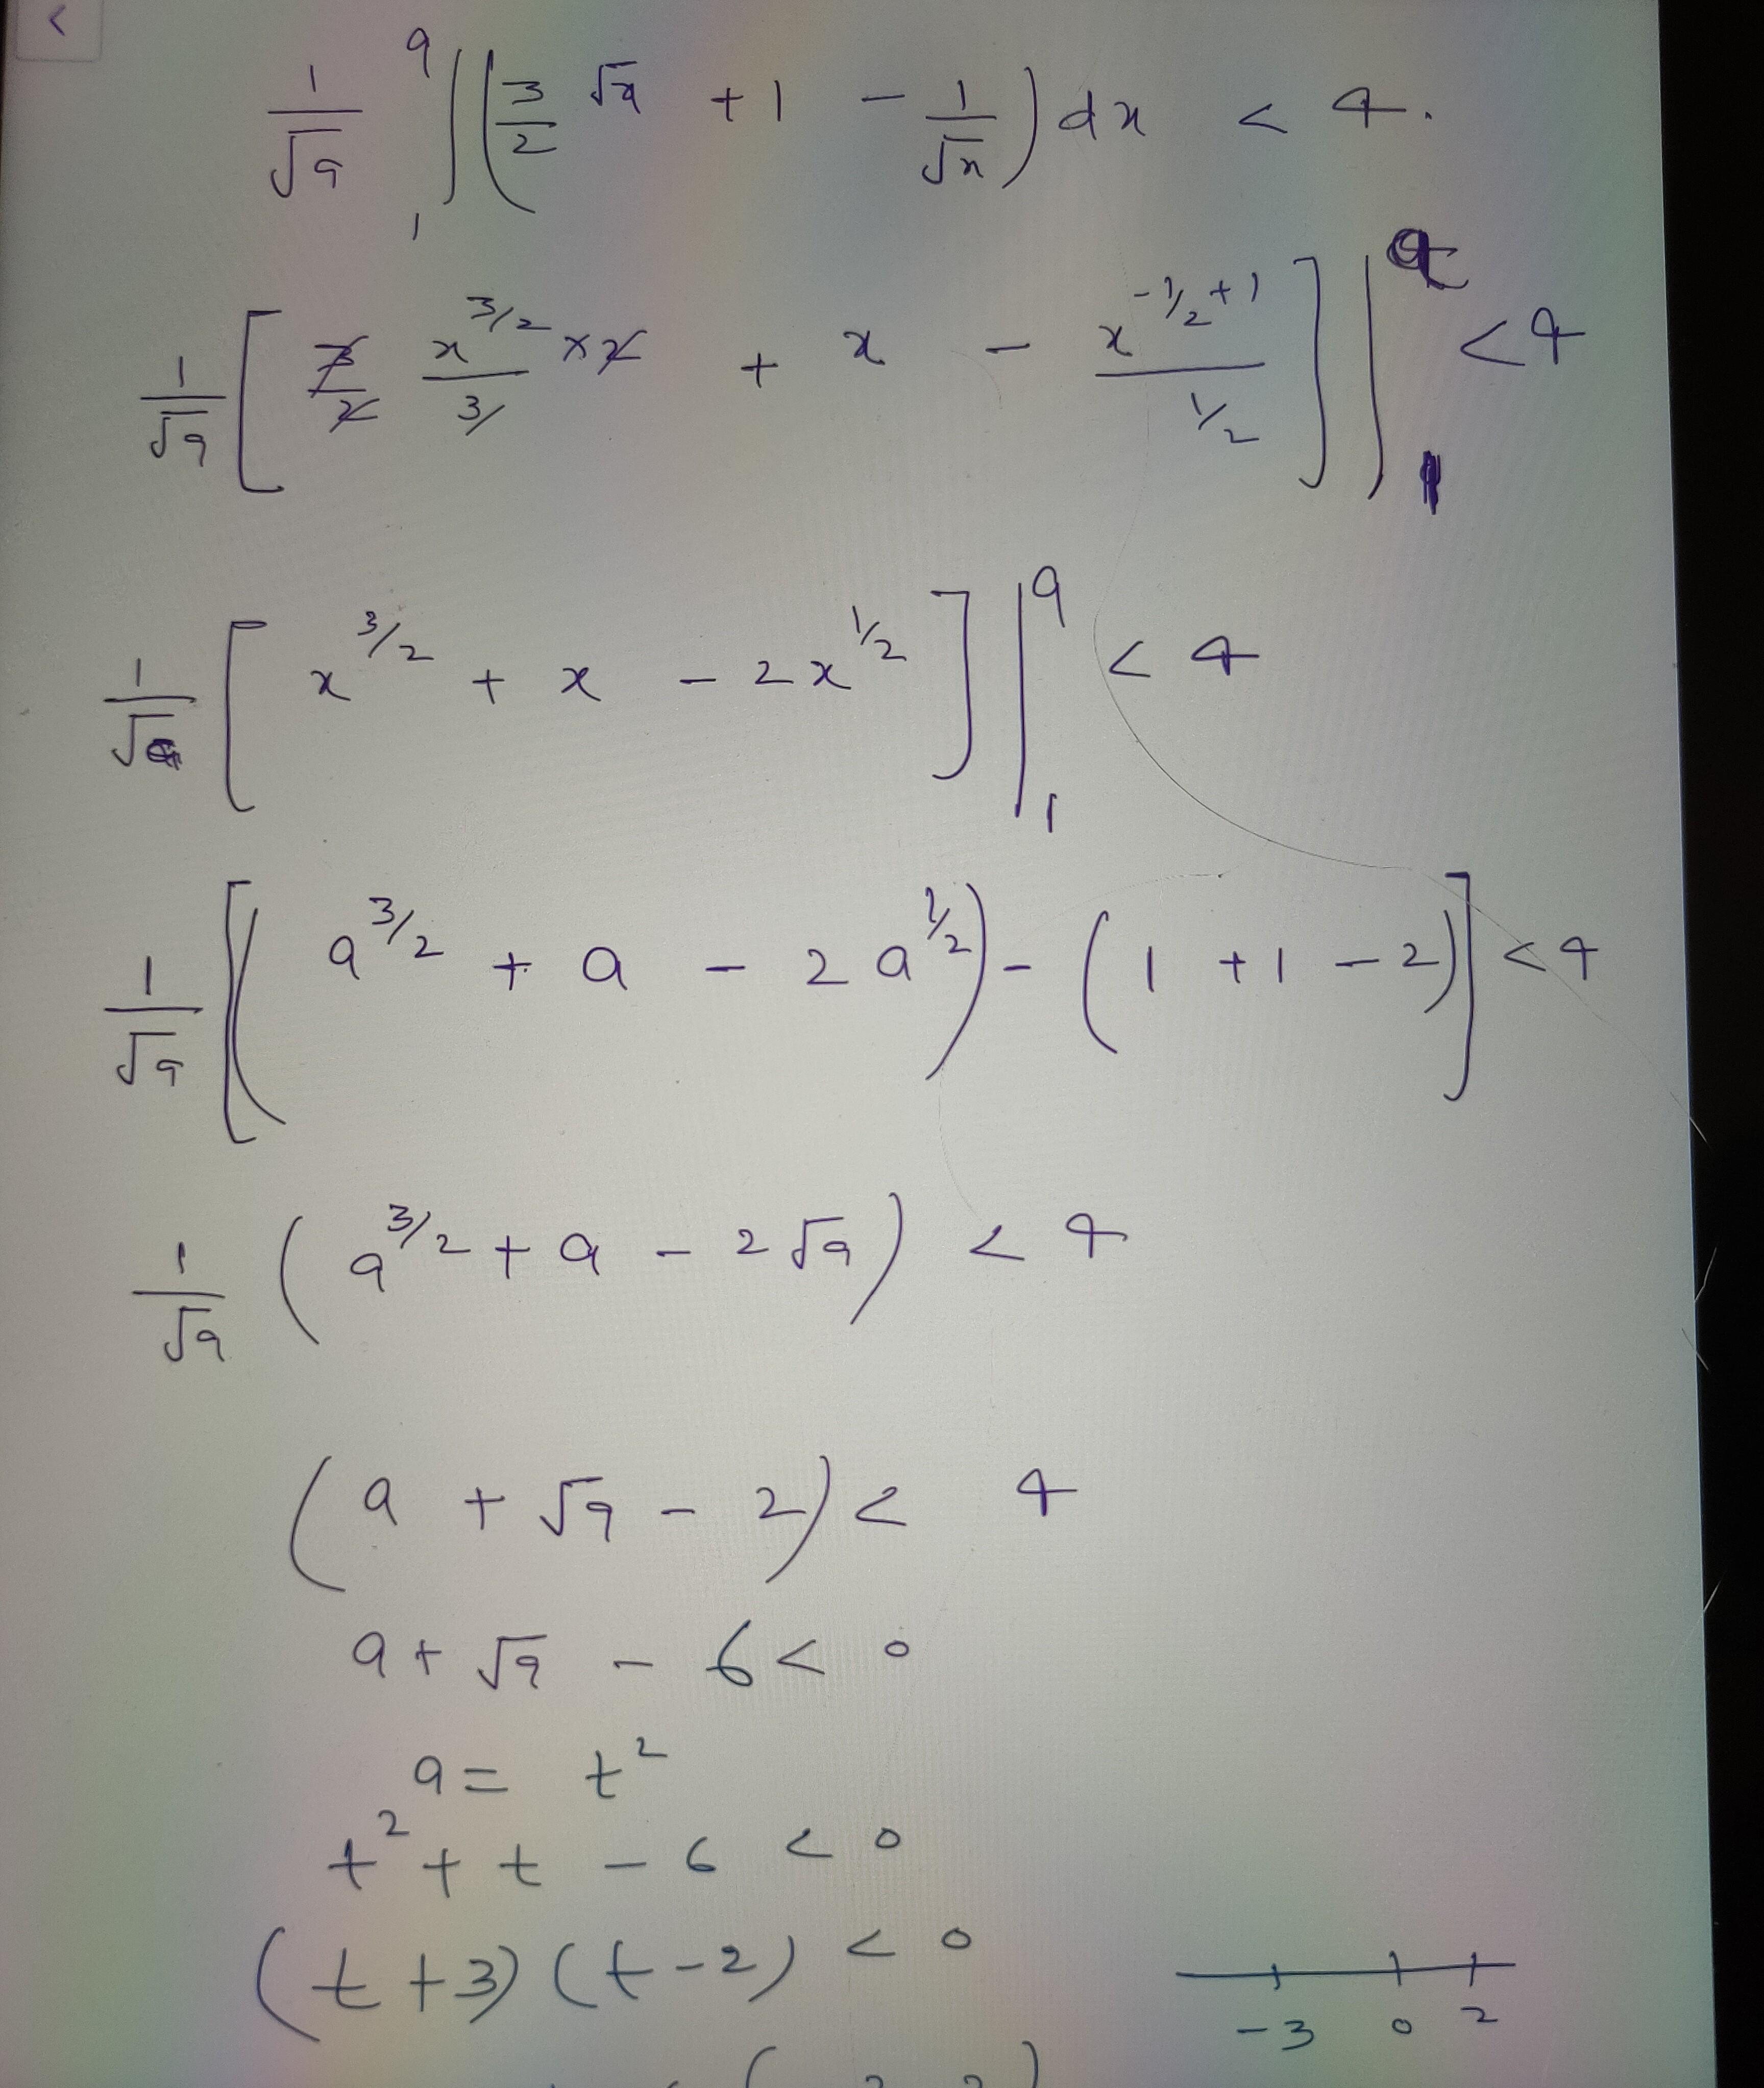 <
1/√a ₁∫ᵃ (3/2 √x + 1 - 1/√x) dx < 4.
1/√a [ 3/2 x^(3/2)/3 × 2 + x - x^(-1/2+1)/(1/2) ] |₁ᵃ < 4
1/√a [ x^(3/2) + x - 2x^(1/2) ] |₁ᵃ < 4
1/√a [( a^(3/2) + a - 2a^(1/2) ) - (1 + 1 - 2)] < 4
1/√a ( a^(3/2) + a - 2√a ) < 4
(a + √a - 2) < 4
a + √a - 6 < 0
a = t²
t² + t - 6 < 0
(t + 3)(t - 2) < 0
-3 0 2